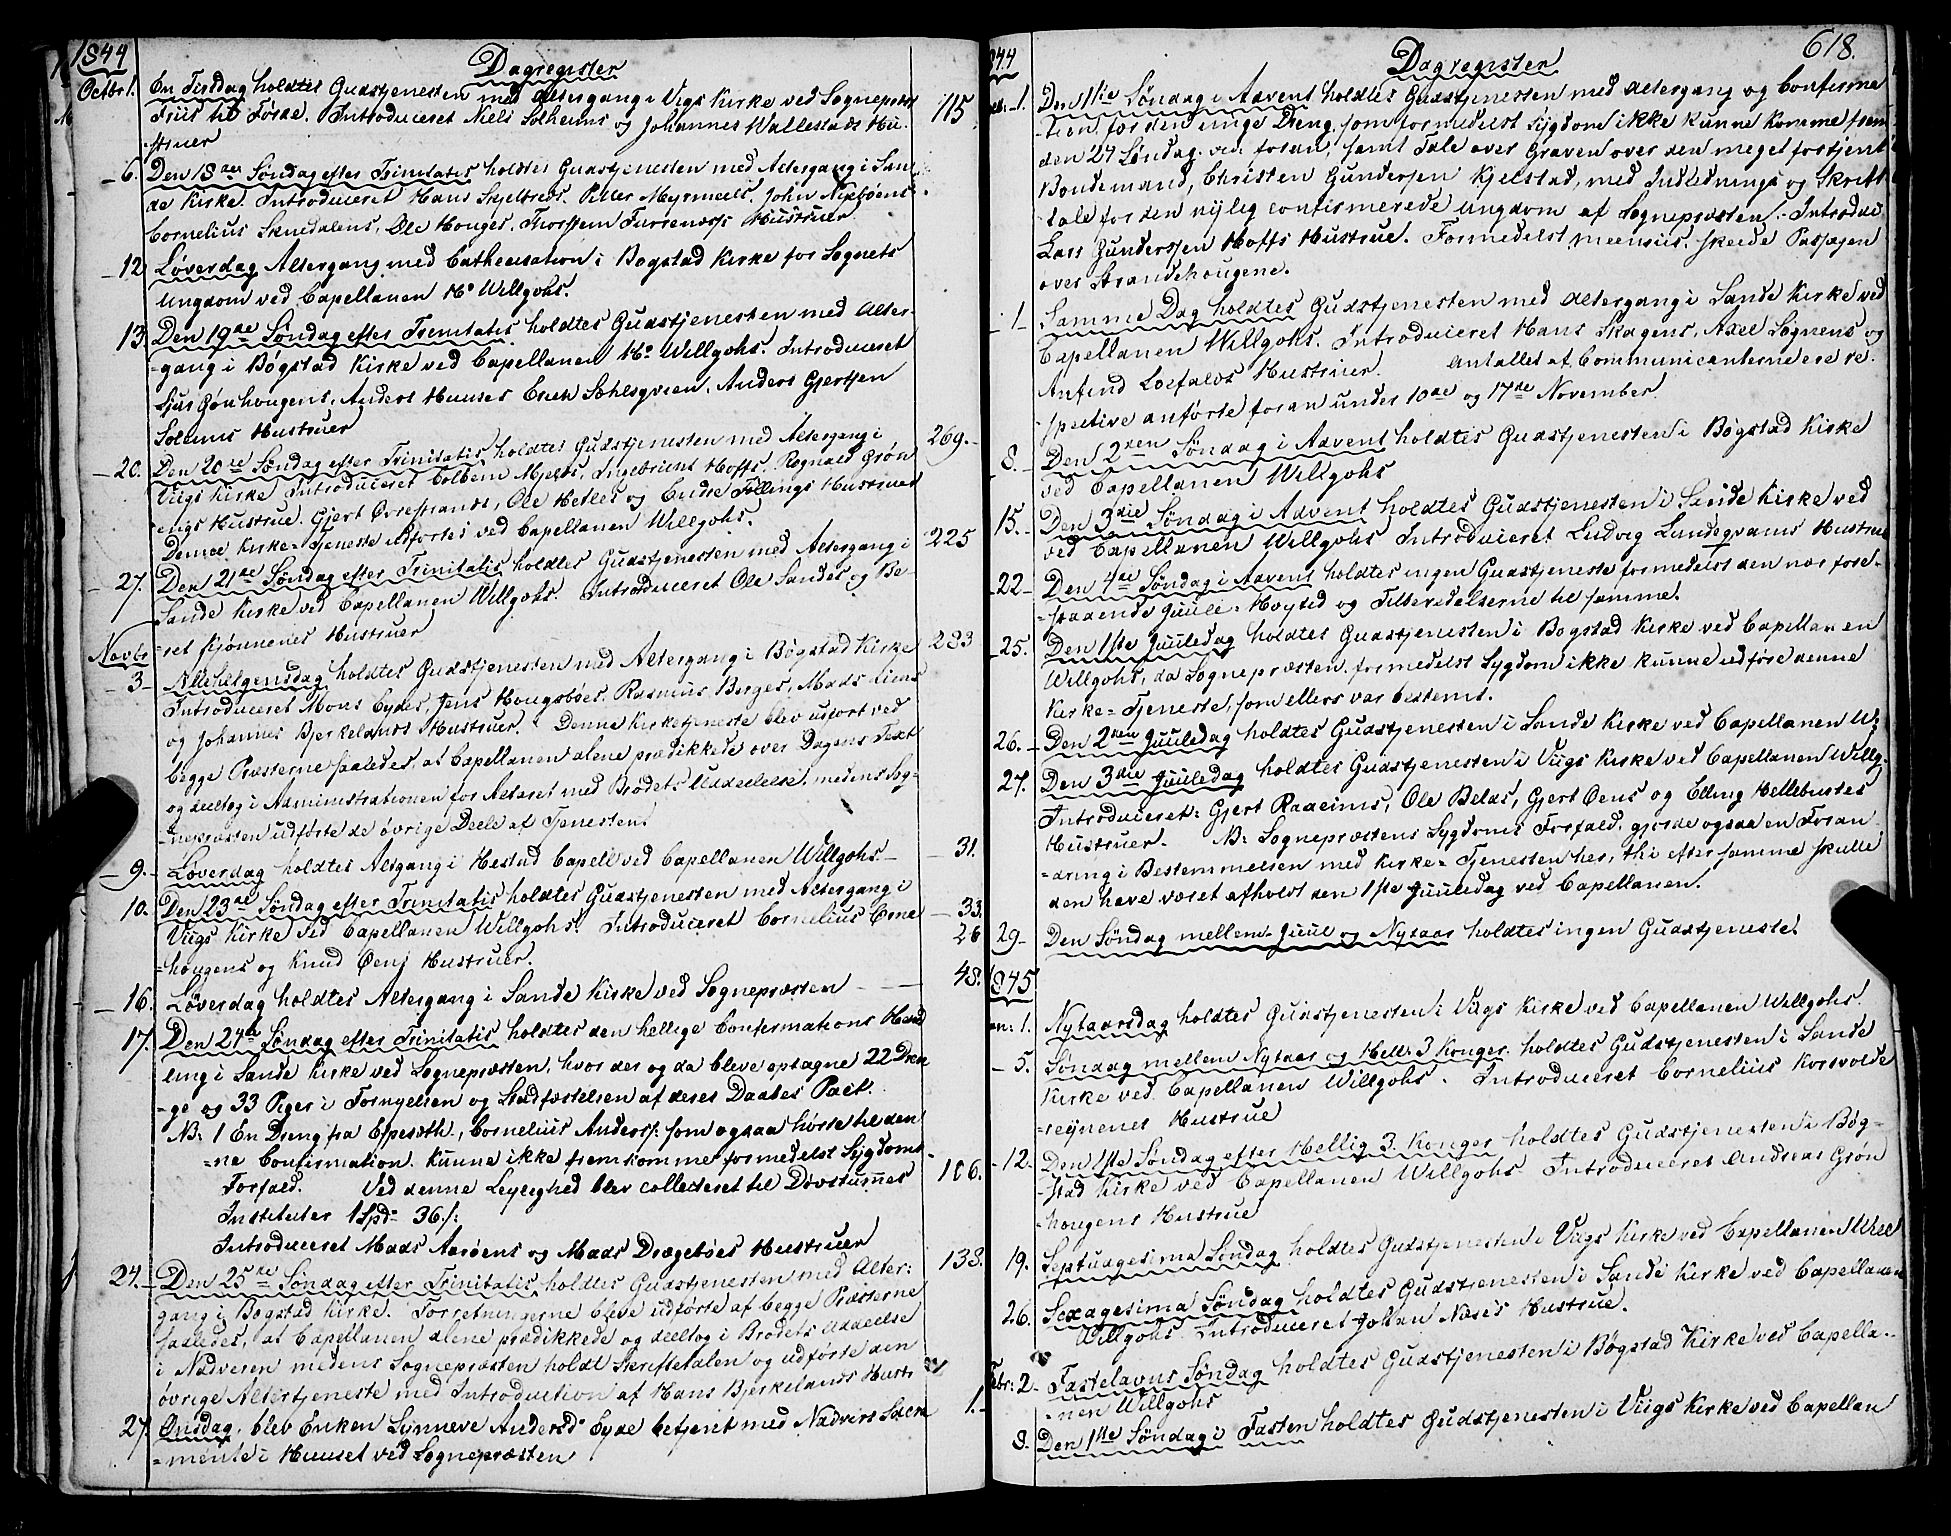 1844
Dagregister
Octbr 1. En Tirsdag holdtes Gudstjenesten med Altergang i Viigs Kirke ved Sognepræst
Friis til Førde. Introduceret Niels Solheims og Johannes Wallestads Hu- 115
struer
6. Den 18de Søndag efter Trinitatis holdtes Gudstjenesten med Altergang i San-
de Kirke. Introduceret Hans Skjeltreds. Peter Myrmeels. John
Cornelius Skredalens, Ole Houges, Thorstein Hustruer.
12. Løverdag Altergang med Cathecisation i Bøgstad Kirke for Sognets
Ungdom ved Capellanen Hr Willgohs.
13. Den 19de Søndag efter Trinitatis holdtes Gudstjenesten med Alter-
=gang i Bøgstad Kirke ved Capellanen Hr Willgohs. Introduceret
Anders Huuses Erich Anders Gjertsen
Solems Hustruer
20. Den 20de Søndag efter Trinitatis holdtes Gudstjenesten med Altergang i 269.
Viigs Kirke Introduceret Colbein Mjelds, Ingebrict Hoffs, Rognald Grøn
=engs Hustrue. Gjert Øvrestrands, Ole Hetles og Endre Føllings Hustruer
Denne Kirke=Tjeneste udførtes ved Capellanen Willgohs. 225
27. Den 21de Søndag efter Trinitatis holdtes Gudstjenesten med Altergang i
Sande Kirke ved Capellanen Willgohs. Introduceret Ole Sandes og Be-
=ret Hustruer
Novbr
3 Allehelgensdag holdtes Gudstjenesten med Altergang i Bøgstad Kirke 283
Introduceret Mons Eydes, Jens Hougsbøes. Rasmus Berges, Mads Liens
og Johannes Bjerkelands Hustruer. Denne Kirketjeneste blev udført ved
begge Præsterne saaledes, at Capellanen alene prædikkede over Dagens Text
og deeltog i Administrationen for Alteret med Brødets Uddeelelse, medens Sog-
=nepræsten udførte de øvrige Deele af Tjenesten.
9. Løverdag holdtes Altgang i Hestad Capell ved Capellanen Willgohs 31.
10. Den 23de Søndag efter Trinitatis holdtes Gudstjenesten med Altergang i
Viigs Kirke ved Capellanen Willgohs. Introduceret Cornelius Erne 33.
=hougens og Knud Øens Hustruer. 26
16. Løverdag holdtes Altergang i Sande Kirke ved Sognepræsten 48.
17. Den 24de Søndag efter Trinitatis holdtes den hellige Confirmations Hand
ling i Sande Kirke ved Sognepræsten, hvor der og da bleve optagne 22 Dren
=ge og 33 Piger i Fornyelsen og Stadfæstelsen af deres Daabes Pact.
NB: 1 En Dreng fra Espesæth, Cornelius Anders: som ogsaa hørte til den
=ne Confirmation. kunne ikke fremkomme formedelst Sygdoms
Forfald. Ved denne Leylighed blev collecteret til Døvstummes 106.
Instituter 1 Spd- 36/:
Introduceret Mads Aarøens og Mads Drægebøes Hustruer
24. Den 25de Søndag efter Trinitatis holdtes Gudstjenesten med Alter: 138.
gang i Bøgstad Kirke. Forretningerne bleve udførte af begge Præsterne
saaledes, at Capellanen alene prædikkede og deeltog i Brødets Uddeelse
i Nadveren medens Sognepræsten holdt Skriftetalen og udførte den
øvrige Altertjeneste med Introduction af Hans Bjerkelands Hustr
27. Onsdag, blev Enken Synneve Andersd: Eyde betjent med Nadvers Sacra 1.
=mente i Huuset ved Sognepræsten
844
Dagregister
618.
1. Den 1ste Søndag i Advent holdtes Gudstjenesten med Altergang og Confirma
=tion for den unge Dreng, som formedelst Sygdom ikke kunne komme frem
den 24 Søndag. vid: foran, samt Tale over Graven over den meget fortjent
Bondemand, Christen Gundersen Kjelstad, med Indlednings og Skrift
=tale for den nylig confirmerede Ungdom af Sognepræsten. Introduc:
Lars Gundersen Hoffs Hustrue. Formedelst skeede Passagen
over Strandehougene.
1 Samme Dag holdtes Gudstjenesten med Altergang i Sande Kirke ved
Capellanen Willgohs. Introduceret Hans Skagens, Axel Sognens og
Anfind Loefalds Hustruer. Antallet af Communicanterne ere re-
spective anførte foran under 10de og 17de November.
8. Den 2den Søndag i Advent holdtes Gudstjenesten i Bøgstad Kirke
ved Capellanen Willgohs
15. Den 3die Søndag i Advent holdtes Gudstjenesten i Sande Kirke ved
ved Capellanen Willgohs Introduceret Ludvig Lundegrams Hustrue
22 Den 4de Søndag i Advent holdtes ingen Gudstjeneste formedelst den nær fore-
=staaende Juule=Høytid og Tilberedelserne til samme.
25. Den 1ste Juuledag holdtes Gudstjenesten i Bøgstad Kirke ved Capellanen
Willgohs, da Sognepræsten formedelst Sygdom ikke kunne udføre denne
Kirke=Tjeneste, som ellers var bestemt.
26. Den 2den Juuledag holdtes Gudstjenesten i Sande Kirke ved Capellanen W:
27. Den 3die Juuledag holdtes Gudstjenesten i Viigs Kirke ved Capellanen Willg.
Introduceret: Gjert Raaeims, Ole Belds, Gjert Øens og Elling Hellebustes
Hustruer. B: Sognepræstens Sygdoms Forfald, gjorde ogsaa en Foran-
=dring i Bestemmelsen med Kirke=Tjenesten her, thi efter samme skulle
den have været afholdt den 1ste Juuledag ved Capellanen.
29 Den Søndag mellem Juul og Nytaar holdtes ingen Gudstjeneste.
1845
an: 1. Nytaarsdag holdtes Gudstjenesten i Viigs Kirke ved Capellanen Willgohs.
5. Søndag mellem Nytaar og Hell: 3 Konger. holdtes Gudstjenesten i Sande
Kirke ved Capellanen Willgohs. Introduceret Cornelius Korsvolde
=reynenes Hustrue
12. Den 1ste Søndag efter Hellig 3 Konger holdtes Gudstjenesten i Bøg-
=stad Kirke ved Capellanen Willgohs Introduceret Andreas Grøn
=hougens Hustrue
19. Septuagesima Søndag holdtes Gudstjenesten i Viigs Kirke ved Capellanen
26. Sexagesima Søndag holdtes Gudstjenesten i Sande Kirke ved Capellanen
Willgohs Introduceret Johan Næses Hustrue.
Febr: 2 Fastelavns Søndag holdtes Gudstjenesten i Bøgstad Kirke ved Capella-
=nen Willgohs
9. Den 1ste Søndag i Fasten holdtes Gudstjenesten i Viigs Kirke ved Capellan